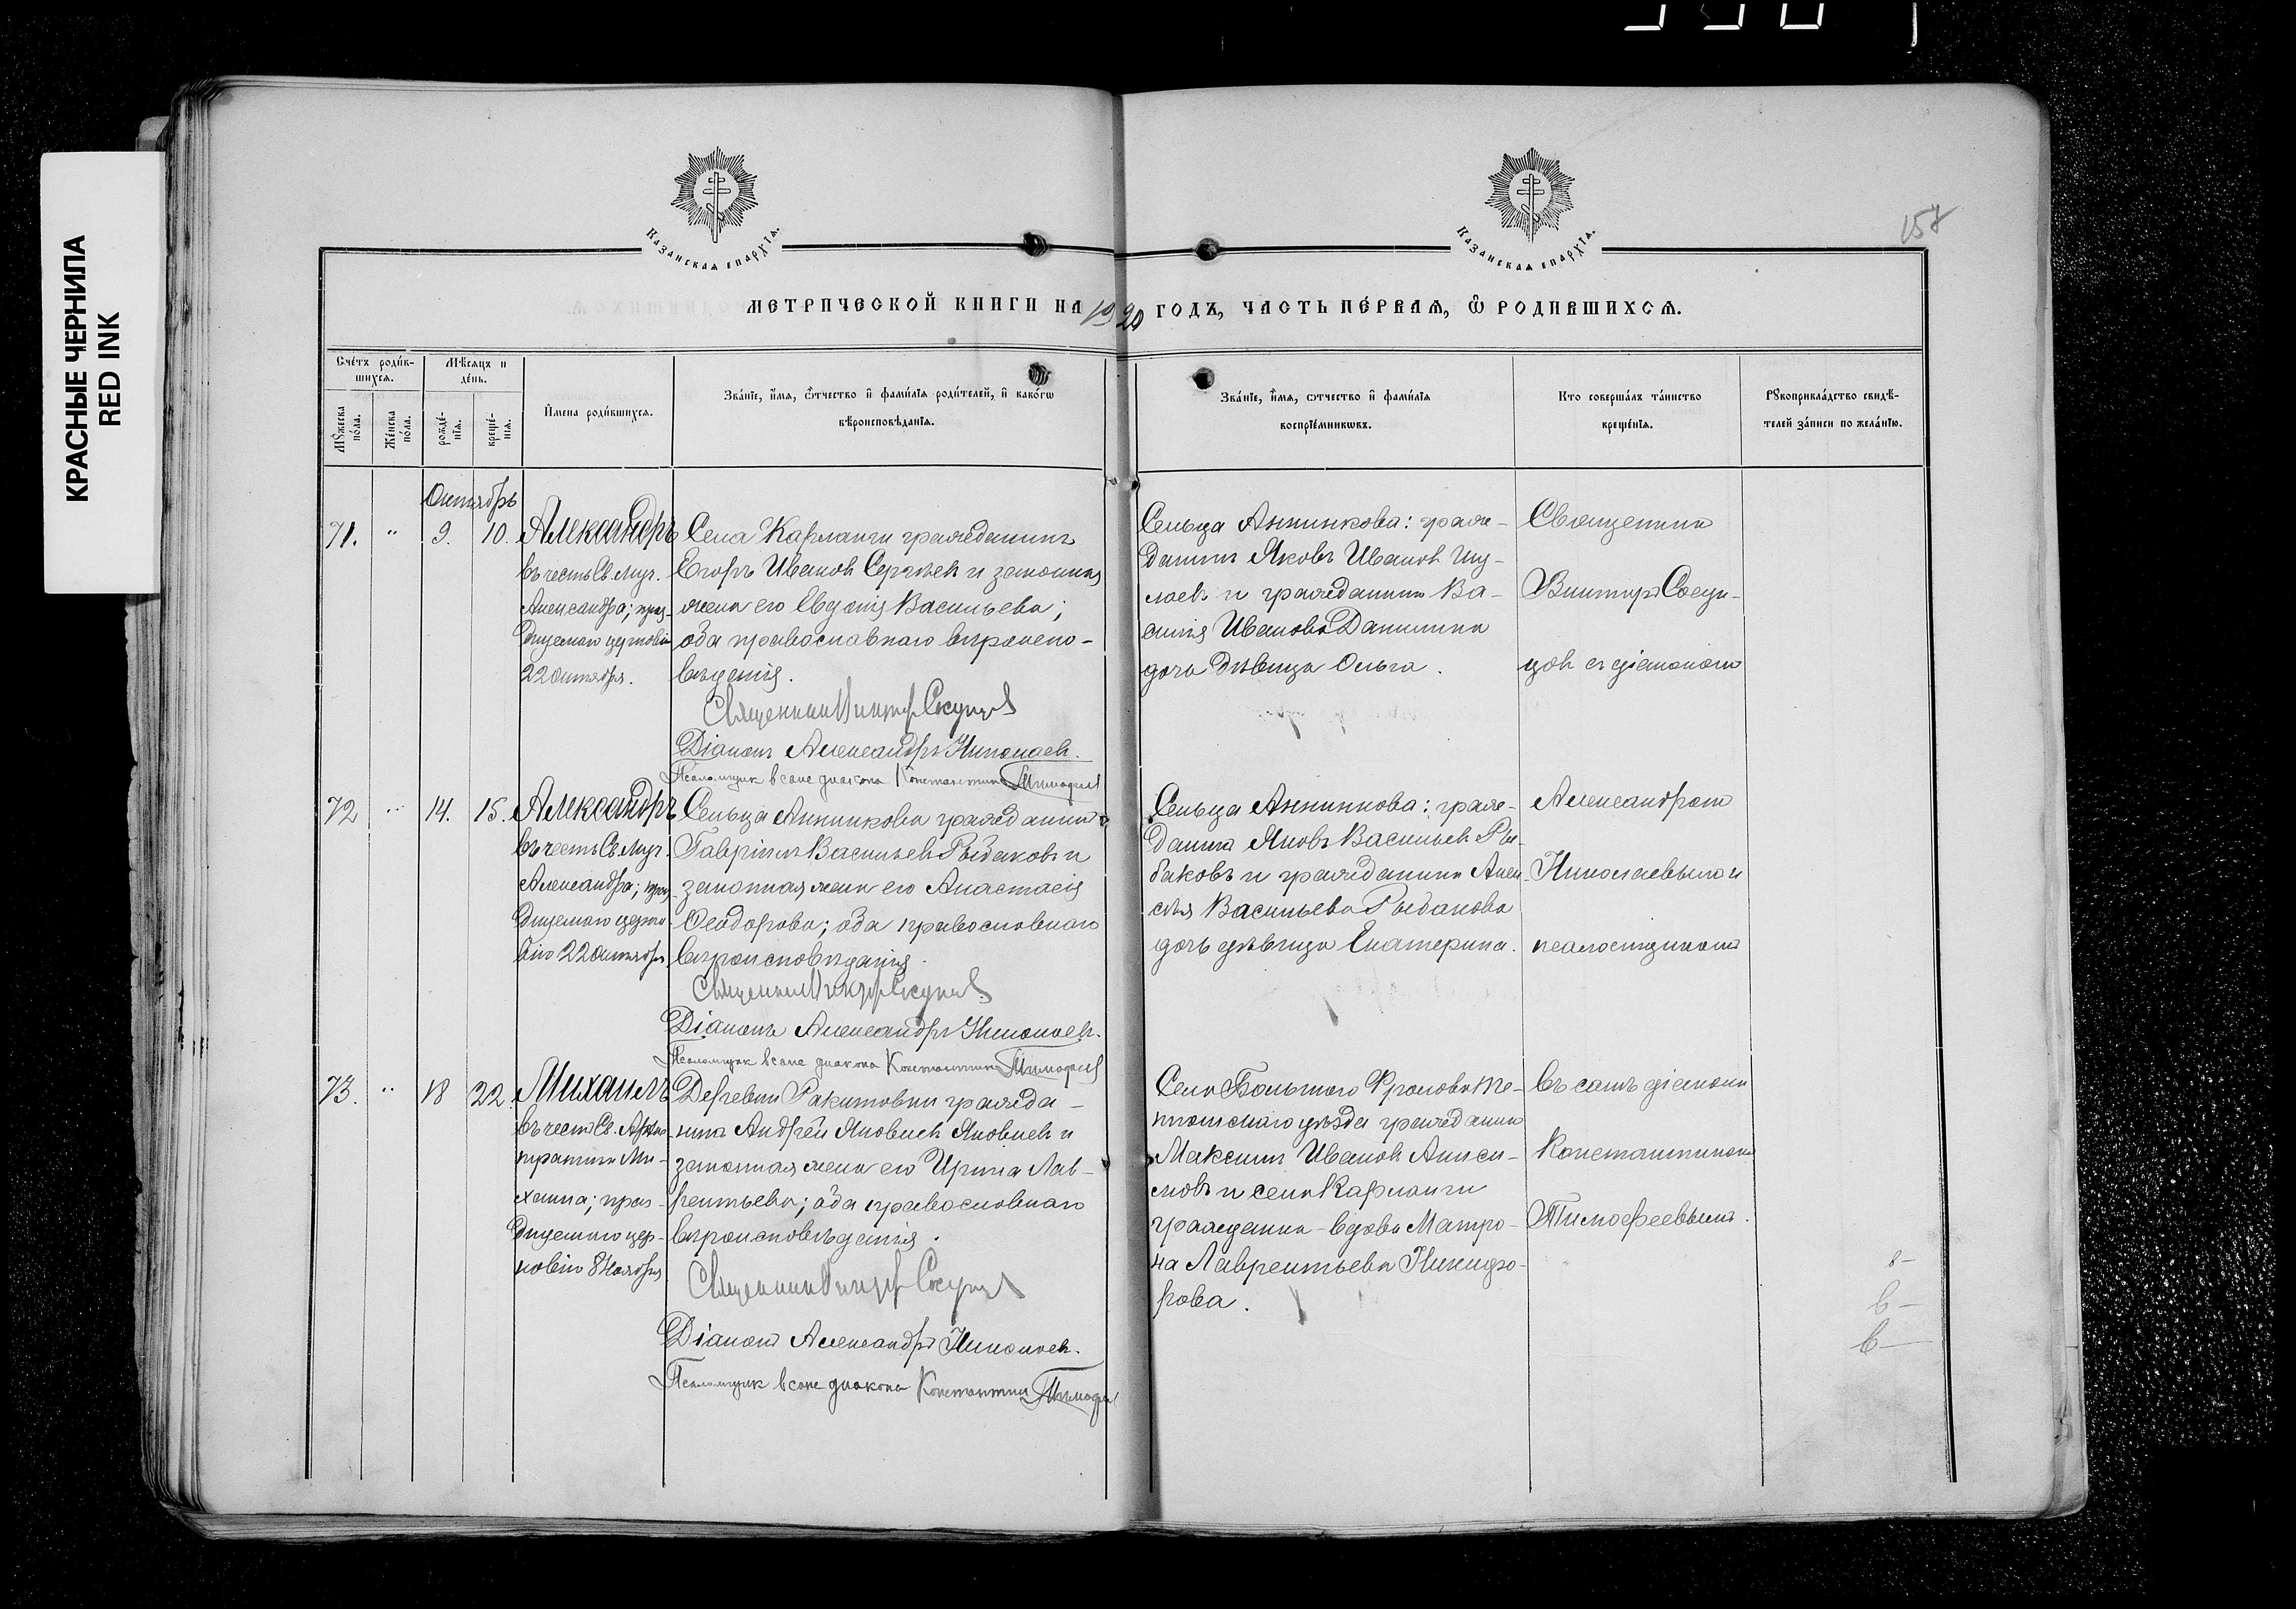 КРАСНЫЕ ЧЕРНИЛА
RED INK
Казанская епархїа.
Казанская епархїа.
158
МЕТРИЧЕСКОЙ КНИГИ НА 1920 ГОДЪ, ЧАСТЬ ПЕ́РВАЯ, Ѿ РОДИВШИХСЯ.
Счéтъ роди́в-
шихся.
Мѣ́сяцъ и
дéнь.
Мꙋ́жеска
пóла.
Жéнска
пóла.
рождé-
нїя.
крещé-
нїя.
И́мена роди́вшихся.
Звáнїе, и́мя, ѻ́тчество и҆ фами́лїя роди́телей, и҆ какóгѡ
вѣроисповѣ́данїя.
Звáнїе, и́мя, ѻ́тчество и҆ фами́лїя
воспрїéмникѡвъ.
Кто совершáлъ тáинство
крещéнїя.
Рꙋкоприклáдство свидѣ́-
телей зáписи по желáнїю.
Октябрь
71. " 9. 10. Александръ
въ честь Св. муч.
Александра; праз-
днуемаго церковію
22 октября.
Села Карланги гражданинъ
Егоръ Ивановъ Сергѣевъ и законная
жена его Евдокія Васильева;
оба православнаго вѣроиспо-
вѣданія.
Священникъ Викторъ Соcунцовъ
Діаконъ Александръ Николаевъ.
Псаломщик в сане диакона Константин Тимофеев
Сельца Анненкова: граж-
данинъ Яковъ Ивановъ
и гражданина Ва-
силія Иванова Данилина
дочь дѣвица Ольга.
Священник
Викторъ
съ діакономъ
72 " 14. 15. Александръ
въ честь Св. муч.
Александра; праз-
днуемаго церко-
вію 22 октября.
Сельца Анненкова гражданинъ
Гавріилъ Васильевъ Рыбаковъ и
законная жена его Анастасія
Ѳеодорова; оба православнаго
вѣроисповѣданія.
Священник Виктор
Діаконъ Александръ Николаевъ.
Псаломщик в сане диакона Константин Тимофеев
Сельца Анненкова: граж-
данинъ Яковъ Васильевъ Ры-
баковъ и гражданина Алек-
сѣя Васильева Рыбакова
дочь дѣвица Екатерина.
Александромъ
Николаевымъ и
псаломщикомъ
73. " 18 22. Михаилъ
въ честь Св. Архи-
стратига Ми-
хаила; праз-
днуемаго цер-
ковію 8 Ноября
Деревни Ракитовки гражда-
нинъ Андрей Яковлевъ Яковлевъ и
законная жена его Ирина Лав-
рентьева; оба православнаго
вѣроисповѣданія.
Священник Виктор
Діаконъ Александръ Николаевъ.
Псаломщик в сане диакона Константин Тимофеев
Села Большого Фролова Те-
тюшскаго уѣзда гражданинъ
Максимъ Ивановъ Аниси-
мовъ и села Карланги
гражданка-вдова Матро-
на Лаврентьева Никифо-
рова.
въ санѣ діакона
Константиномъ
Тимофеевымъ.
в-
в-